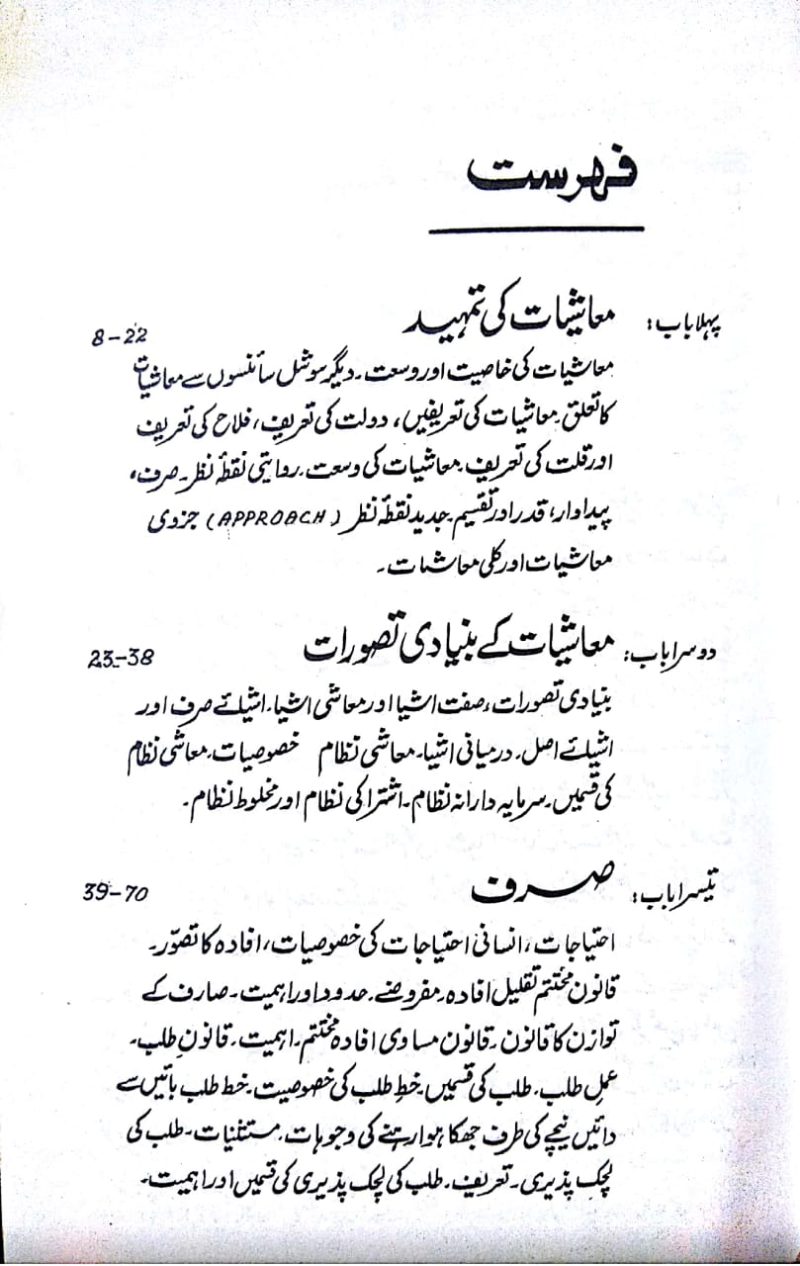 فہرست
پہلا باب: معاشیات کی تمہید 8-22
معاشیات کی خاصیت اور وسعت۔ دیگر سوشل سائنسوں سے معاشیات
کا تعلق۔ معاشیات کی تعریفیں، دولت کی تعریف، فلاح کی تعریف
اور قلت کی تعریف۔ معاشیات کی وسعت۔ روایتی نقطۂ نظر۔ صرف،
پیداوار، قدر اور تقسیم۔ جدید نقطۂ نظر (APPROACH) جزوی
معاشیات اور کلی معاشیات۔
دوسرا باب: معاشیات کے بنیادی تصورات 23-38
بنیادی تصورات، صفت اشیا اور معاشی اشیا۔ اشیائے صرف اور
اشیائے اصل۔ درمیانی اشیا۔ معاشی نظام خصوصیات۔ معاشی نظام
کی قسمیں۔ سرمایہ دارانہ نظام۔ اشتراکی نظام اور مخلوط نظام۔
تیسرا باب: صرف 39-70
احتیاجات، انسانی احتیاجات کی خصوصیات، افادہ کا تصوّر۔
قانون مختتم تقلیل افادہ۔ مفروضے۔ حدود اور اہمیت۔ صارف کے
توازن کا قانون۔ قانون مساوی افادہ مختتم۔ اہمیت۔ قانونِ طلب۔
عمل طلب۔ طلب کی قسمیں۔ خطِ طلب کی خصوصیت۔ خط طلب بائیں سے
دائیں نیچے کی طرف جھکا ہوا رہنے کی وجوہات۔ مستثنیات۔ طلب کی
لچک پذیری۔ تعریف۔ طلب کی لچک پذیری کی قسمیں اور اہمیت۔